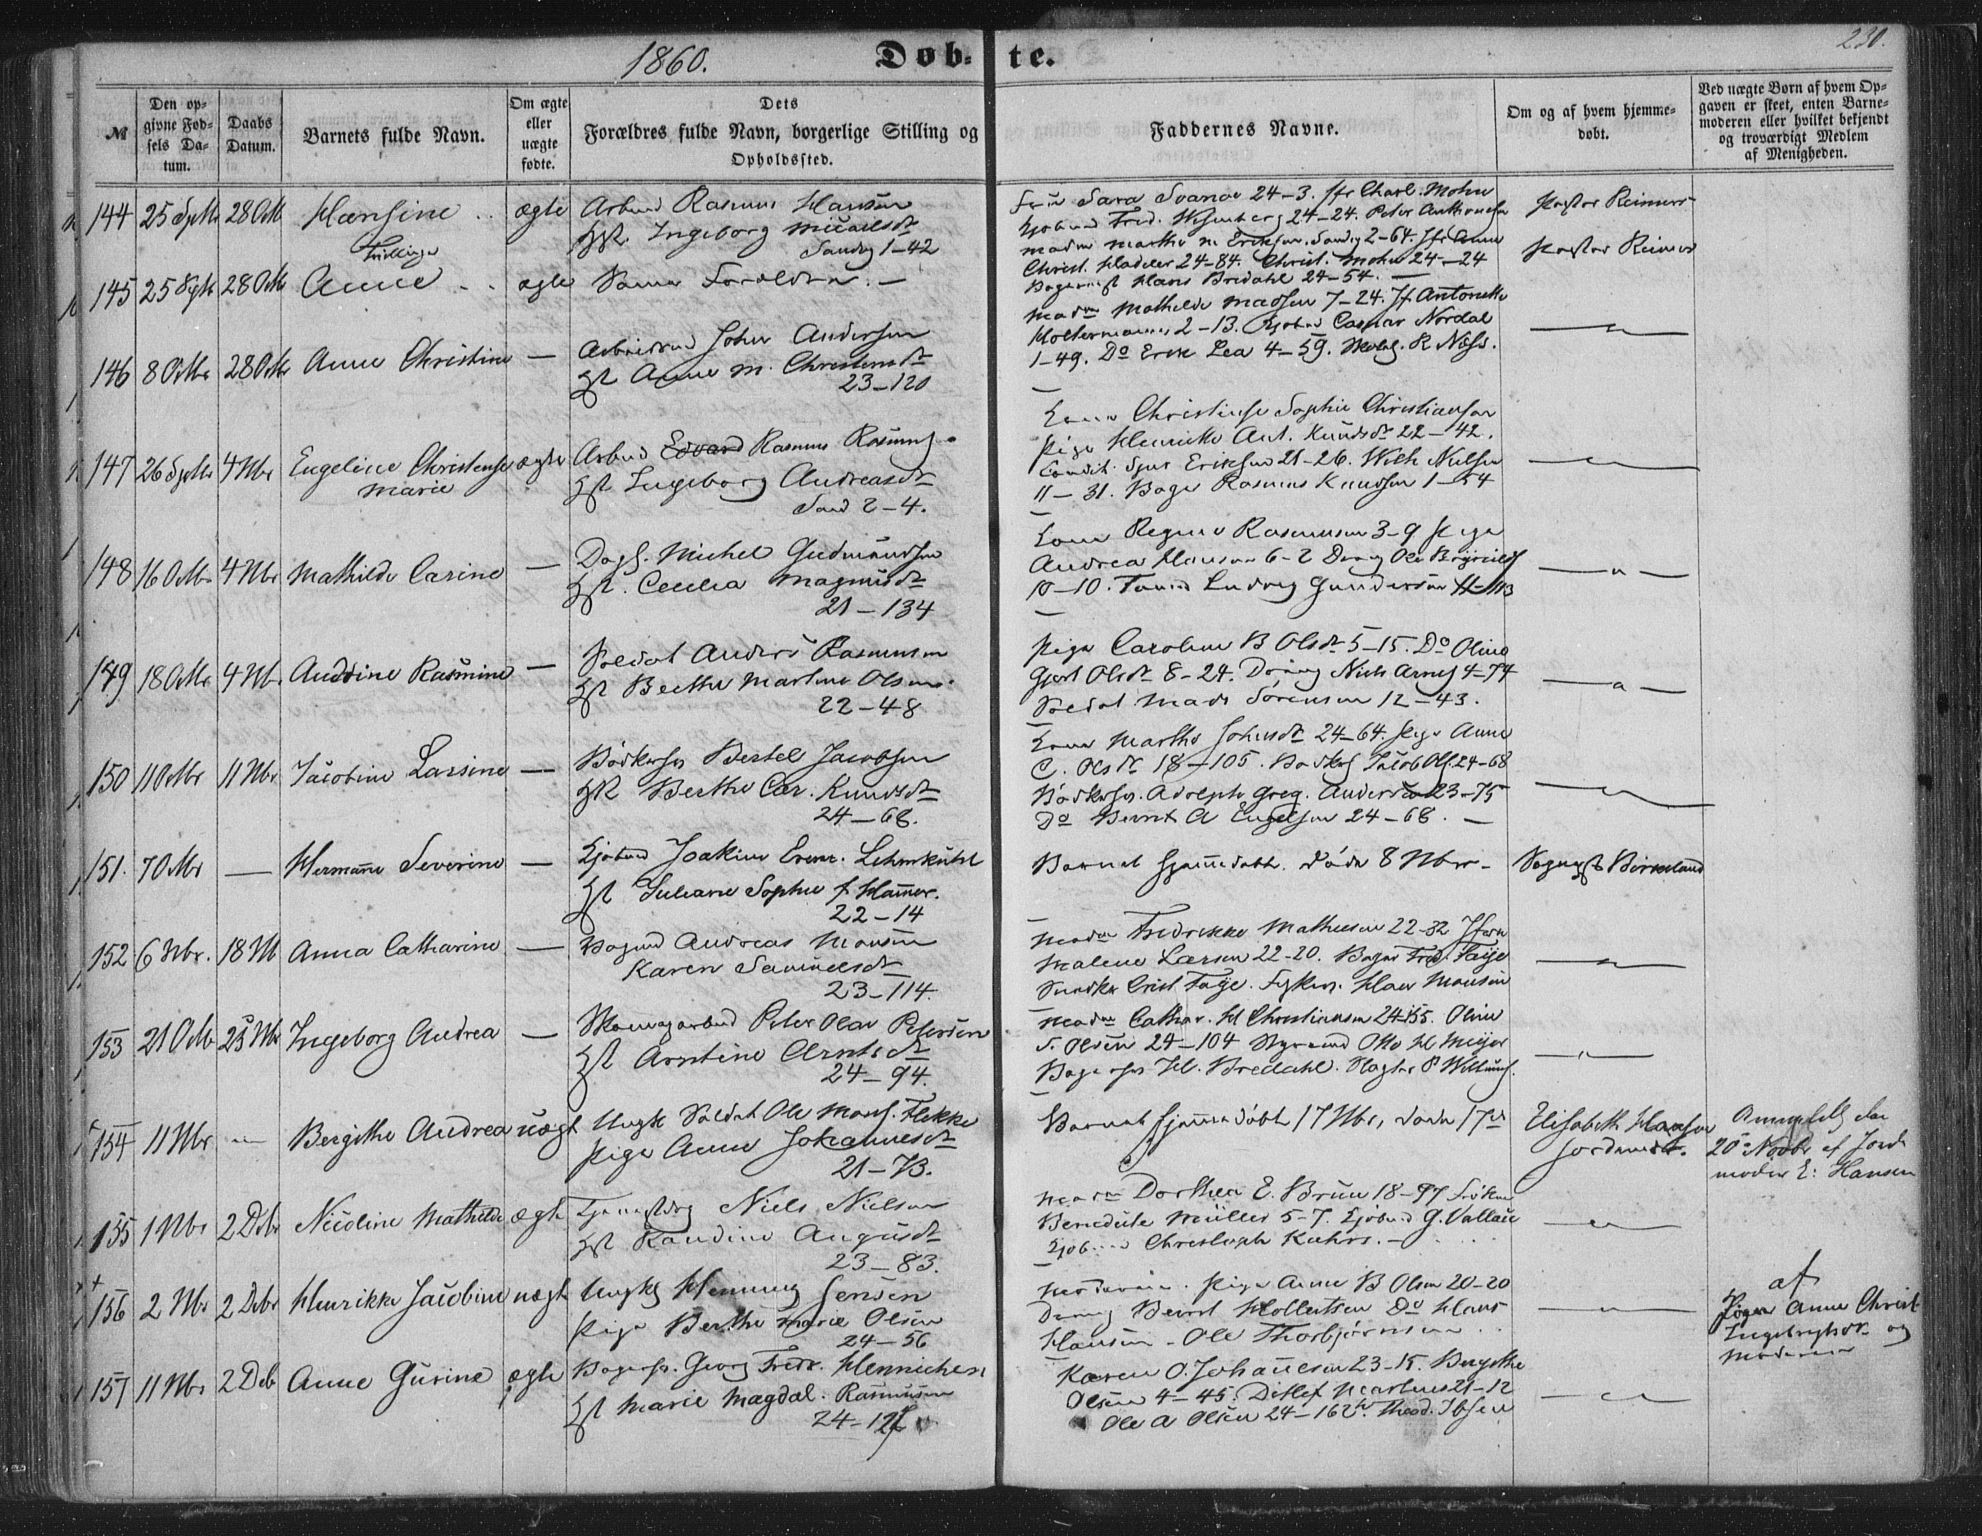 1860.
Døb-
te.
230.
№
Den op-
givne Fød-
sels Da-
tum.
Daabs
Datum.
Barnets fulde Navn.
Om ægte
eller
uægte
fødte.
Dets
Forældres fulde Navn, borgerlige Stilling og
Opholdssted.
Faddernes Navne.
Om og af hvem hjemme-
døbt.
Ved uægte Børn af hvem Op-
gaven er skeet, enten Barne-
moderen eller hvilket bekjendt
og troværdigt Medlem
af Menigheden.
144 25 Septbr 28 Octb Hansine ægte Arbmd Rasmus Hansen
Hst. Ingeborg Micaelsdtr
Sandv 1-42
Frue Sara Svanøe 24-3. Jfr Charl. Mohn
Kjøbmd Fred. 24-24. Peter
Pastor Reimers
Tvillinger
145 25 Septb 28 Octb Anne ægte Samme Forældre. -
Madm Marthe M. Eriksen, Sandv 2-64. Jfr Anne
Christ. 24-84. Christ. Mohn 24-24
Hans Bredahl 24-54. -
Pastor Reimers
146 8 Octbr 28 Octb Anne Christine - Arbeidsmd Johan Andersen
Hst Anne M. Christensdtr
23-120
Madm Mathilde Madsen 7-24. Jf Antonette
Holtermann 2-13. Kjøbmd Caspar Nordal
1-49. Do Erik Lea 4-59. R Næss.
147 26 Septbr 4 Nbr Engeline Christense ægte
Marie
Arbmd Edvard Rasmus
Hst Ingeborg Andreasdtr
Sand 2-4.
Kone Christense Sophie Christiansen
Pige Henrikke Ant. Knudsdtr 22-42.
Condit. Sjur Eriksen 21-26. Wilh Nielsen
11-31. Bager Rasmus Knudsen 1-54
148 16 Octbr 4 Nbr Mathilde Carine - Dagl. Michel Gudmundsen
Hst. Cecilia Magnusdtr
21-134
Kone Regine Rasmussen 3-9 Pige
Andrea Hansen 6-2 Dreng Ole
10-10. Ludvig Gundersen
149 18 Octbr 4 Nbr Andrine Rasmine - Soldat Anders Rasmussen
Hst Berthe Martine Olsen.
22-48
Pige Caroline B Olsdtr 5-15. Do Olina
Olsdtr 8-24. Dreng Niels 4-74
Soldat Mads Sørensen 12-43.
150 11 Octbr 11 Nbr Jacobine Larsine - Bødkersv Bertel Jacobsen
Hst Berthe Car. Knudsdtr
24-68.
Kone Marthe Johnsdtr 24-64. Pige Anne
C. Olsdtr 18-105. Bødkers Jacob Ols. 24-68
Bødkersv. Adolph Greg. Andersen 23-75
Do Bernt A Engelsen 24-68. -
151. 7 Octbr - Hermane Severine - Kjøbmd Joakim Lehmkuhl
Hst Juliane Sophie f Hammer.
22-14
Barnet hjemmedøbt. døde 8 Nbr. -
Sogneprst Birkeland
152 6 Nbr. 18 Nb Anna Catharine - Bagmd Andreas Monsen
Karen Samuelsdtr
23-114.
Madm Fredrikke Mathiesen 22-32
Malene Larsen 22-20. Bager Fred. Faije
Snedker Crist Faije. Monsen
153 21 Octb 25 Nbr Ingeborg Andrea - Skomagarbmd Peter Olai Petersen
Hst Arntine Arntsdtr
24-94.
Madm Cathar. H Christiansen 24-155. Oline
S. Olsen 24-104 Styrmand Otto H Meijer
Bagersv H. Bredahl. Slagter P
154 11 Nbr - Bergithe Andrea uægt Ungk Soldat Ole Flekke
Pige Anne Johannesdtr
21-73.
Barnet hjemmedøbt 17 Nbr, døde 17de
Elisabeth Hansen
Jordemdr.
Anmeldt den
20de Novbr af Jorde
moder E: Hansen
155 1 Nbr 2 Decbr Nicoline Mathilde ægte Niels Nielsen
Hst Randine Angusdtr
23-83.
Madm Dorthea E. Bruun 18-97 Frøken
Benedicte Müller 5-7. Kjøbmd G. Vallaie
Kjøbmnd Christoph Kahrs. -
156 2 Nbr 2 Decbr Henrikke Jacobine uægt Ungk Henning Jensen
Pige Berthe Marie Olsen
24-56
Moderen. Pige Anne B Olsen 20-20
Dreng Bernt Do Hans
Hansen - Ole Thorbjørnsen
af
Pigen Anne Christ
og
Moderen
157 11 Nbr 2 Decb Anne Gurine ægte Bagersv. Georg Fredr. Hennichen
Hst Marie Magdal. Rasmussen
Karen O. Johannesen 23-15. Bergithe
Olsen 4-45. Detlef Martens 21-12
Ole A Olsen 24-162. Theod. Ibsen